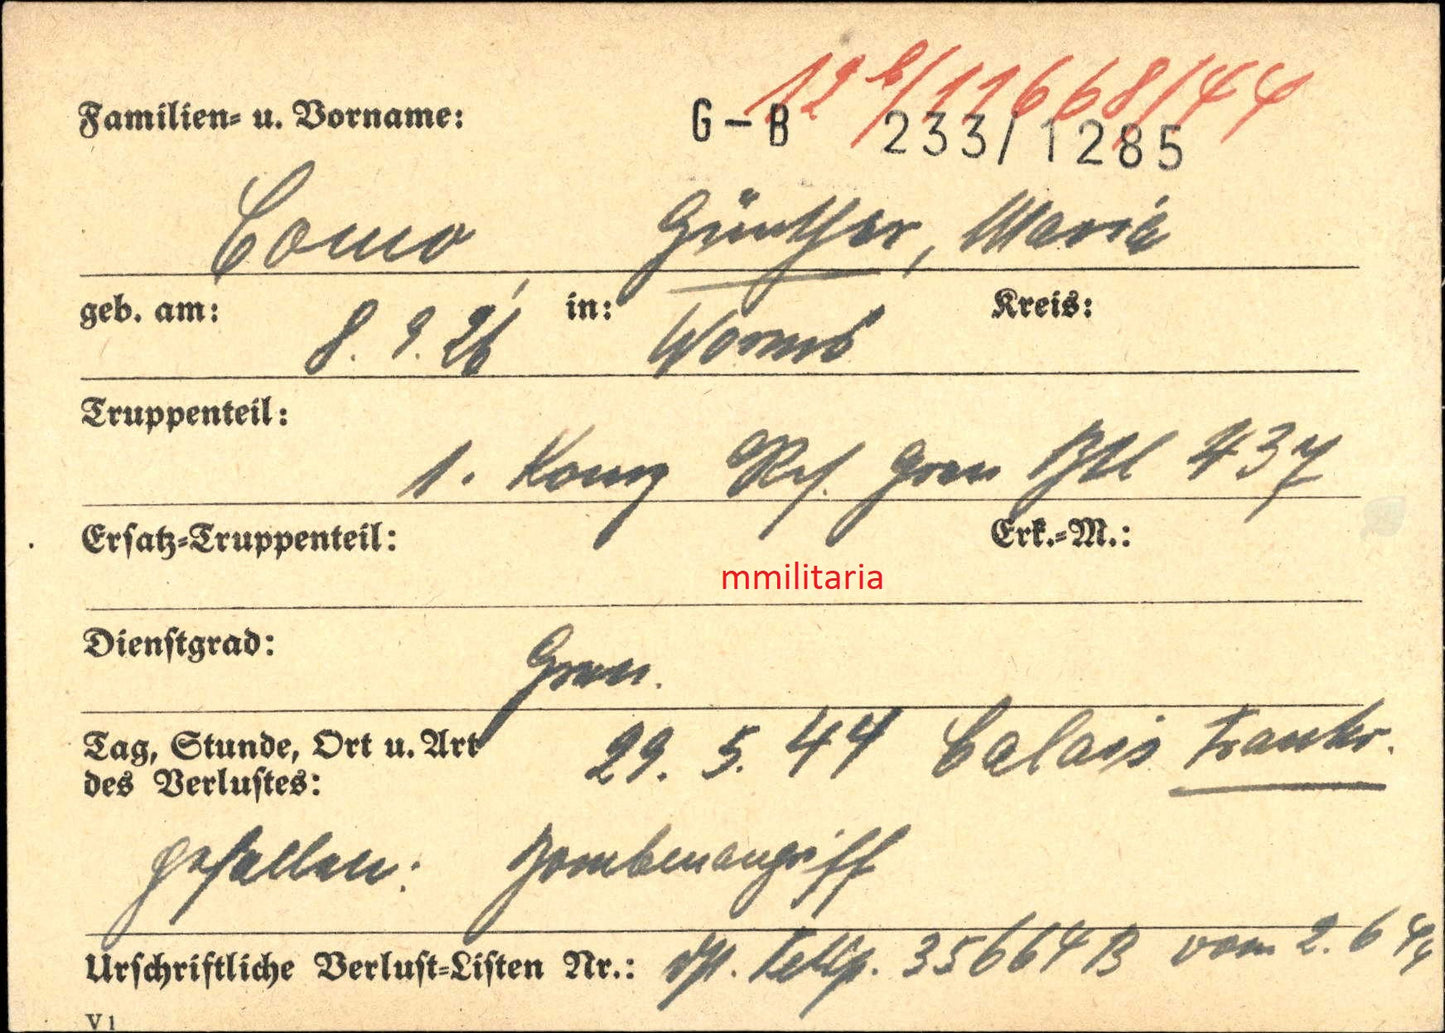 12 e/11668/44
Familien- u. Vorname: G-B 233/1285
Como, Günther, Mario
geb. am: 8. 9. 26 in: Worms Kreis:
Truppenteil:
1. Komp Res. Gren Btl 437
Ersatz-Truppenteil: Erk.-M.:
mmilitaria
Dienstgrad:
Gren.
Tag, Stunde, Ort u. Art 29. 5. 44 Calais Frankr.
des Verlustes:
gefallen: Bombenangriff
Urschriftliche Verlust-Listen Nr.: 35664 B vom 2. 6 44
V 1